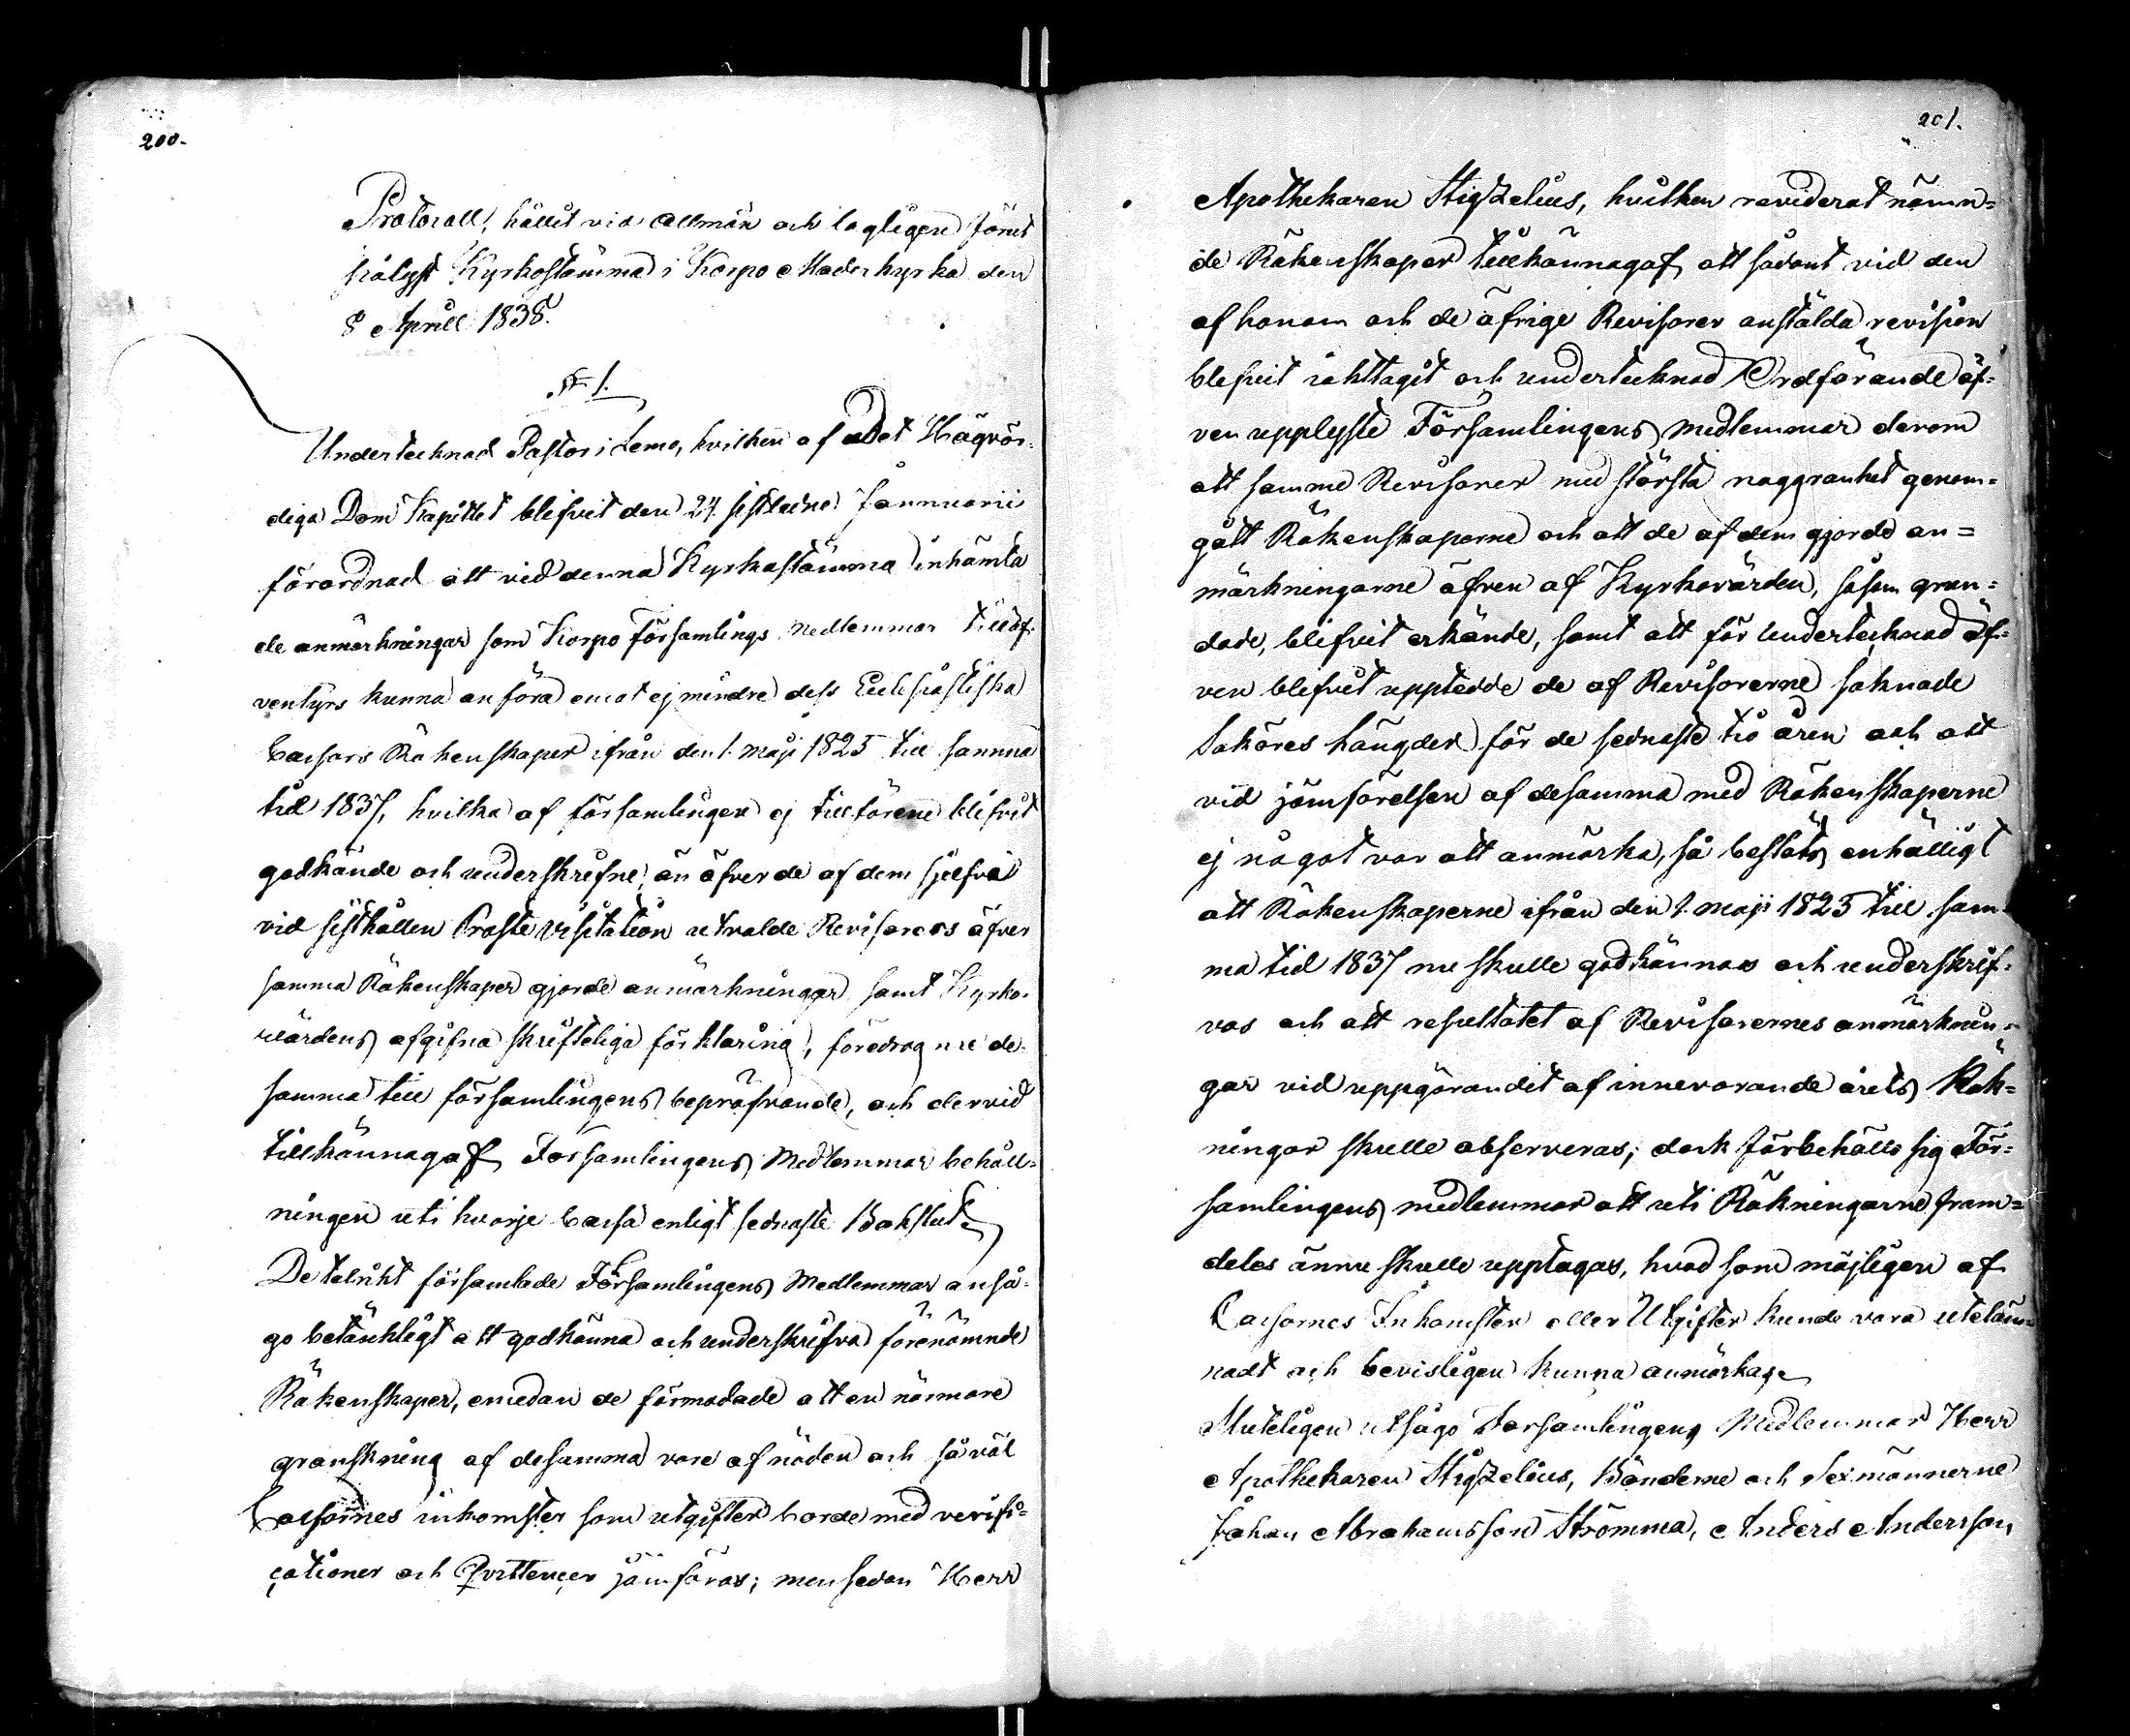 200.
Protocoll, hållit vid allmän och lagligen förut
pålyst Kyrkostämma i Korpo Moderkyrka den
8 April 1838.
§ 1.
Undertecknad Pastor i Lemo, hvilken af det Högvör-
diga Dom Kapitlet blifvit den 24 sistledne Jannuarii
förordnad att vid denna Kyrkostämma inhämta
de anmärkningar som Korpo Församlings Medlemmar till äf-
ventyrs kunna anföra emot ej mindre dess Ecclesiastiska
Cassors Räkenskaper ifrån den 1. Maji 1825 till samma
tid 1837, hvilka af församlingen ej tillförene blifvit
godkände och underskrefne, än äfver de af dem sjelfva
vid sisthållen Proste Visitation utvalde Revisorers äfver
samma Räkenskaper gjorde anmärkningar samt Kyrko-
värdens afgifna skrifteliga förklaring, föredrog nu de-
samma till församlingens bepröfvande, och dervid
tillkännagaf Församlingens Medlemmar behåll-
ningen uti hvarje Cassa enligt sednaste Bokslut.
De talrikt församlade Församlingens Medlemmar anså-
go betänkligt att godkänna och underskrifva förenämnde
Räkenskaper, emedan de förmodade att en närmare
granskning af desamma vore af nöden och så väl
Cassornes inkomster som utgifter borde med verifi-
cationer och Qvittencer jämföras; men sedan Herr
201.
Apothekaren Stigzelius, hvilken reviderat nämn=
de Räkenskaper tillkännagaf, att sådant vid den
af honom och de öfrige Revisorer anstälda revision
blefvit iakttagit och undertecknad Ordförande äf=
ven upplyste Församlingens medlemmar derom
att samme Revisorer med största noggranhet genom=
gått Räkenskaperne och att de af dem gjorde an=
märkningarne äfven af Kyrkovärden, såsom grun=
dade, blifvit erkände, samt att för Undertecknad äf=
ven blefvit uppteedde de af Revisorerne saknade
Saköres längder för de sednaste tio åren och att
vid jämförelsen af desamma med Räkenskaperne
ej något var att anmärka, så beslöts enhälligt
att Räkenskaperne ifrån den 1. maji 1825 till sam-
ma tid 1837 nu skulle godkännas och underskrif=
vas och att resultatet af Revisorernes anmärknin=
gar vid uppgörandet af innevarande årets Räk=
ningar skulle observeras; dock förbehöllo sig För=
samlingens medlemmar att uti Räkningarne fram=
deles ännu skulle upptagas, hvad som möjligen af
Cassornes Inkomster eller Utgifter kunde vara uteläm=
nadt och bevisligen kunna anmärkas.
Sluteligen utsågo Församlingens Medlemmar Herr
Apothekaren Stigzelius, Bönderne och Sexmännerne
Johan Abrahamsson Strömma, Anders Andersson